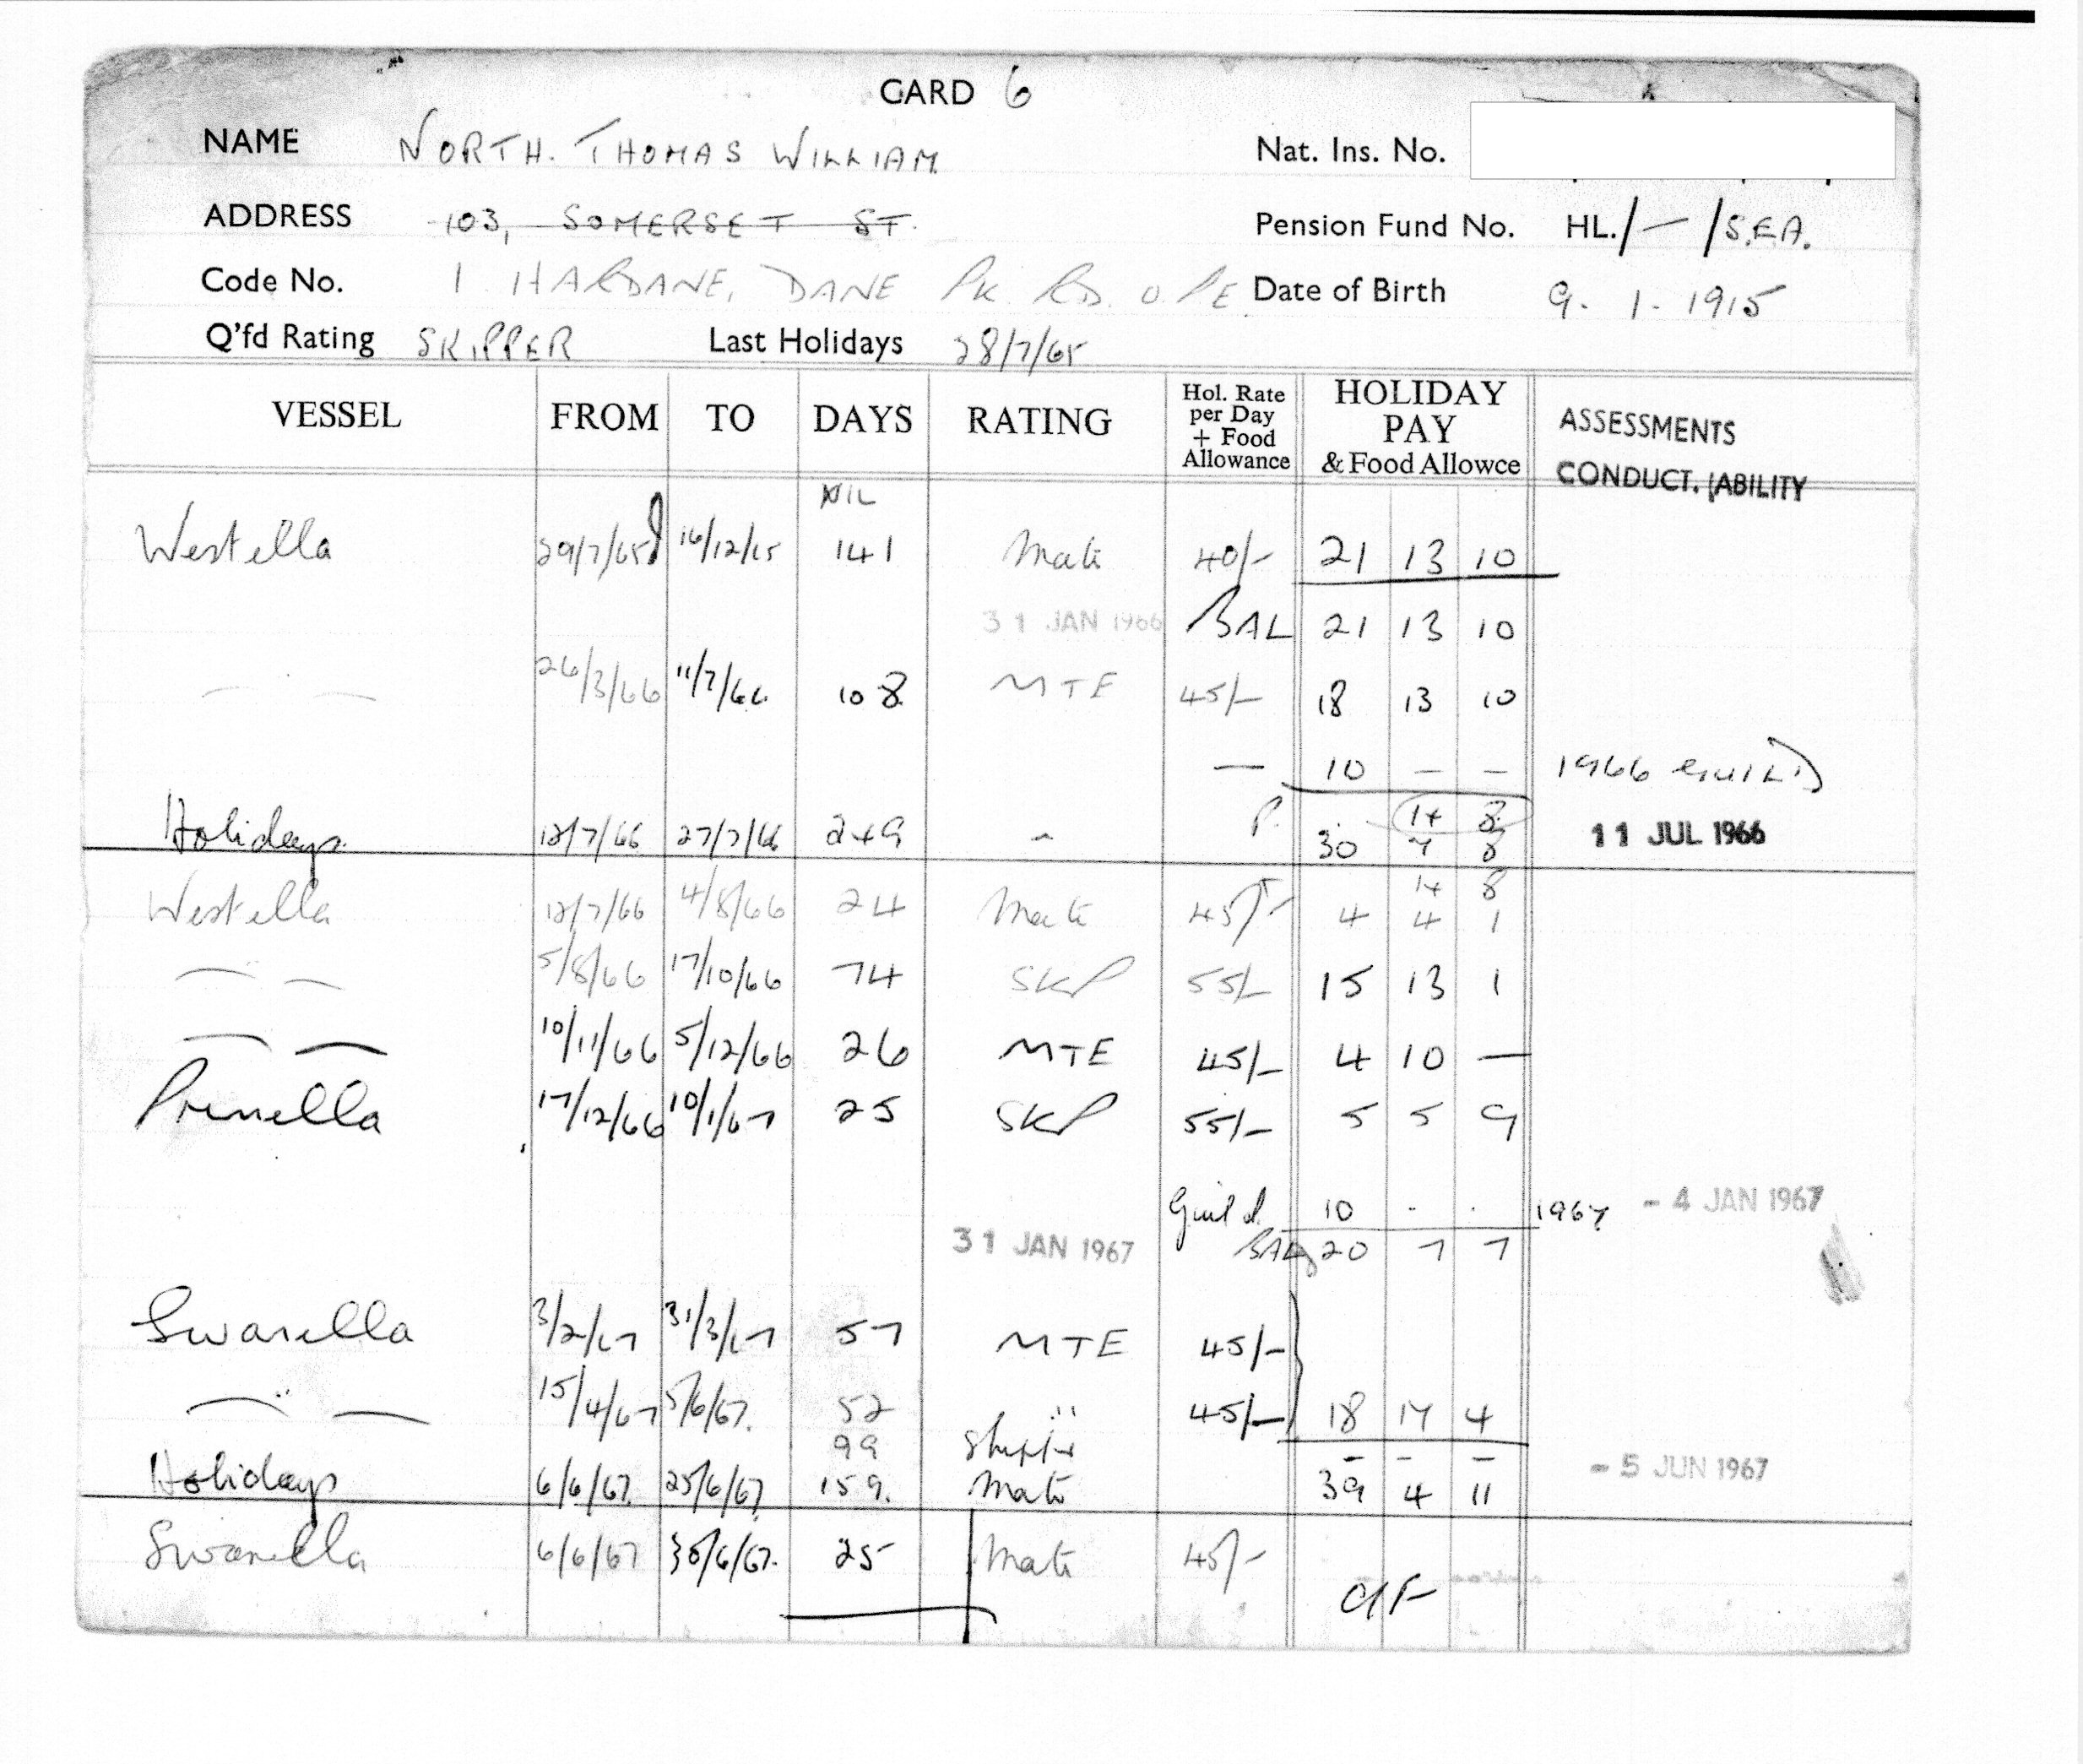 CARD 6
NAME NORTH. THOMAS WILLIAM Nat. Ins. No.
ADDRESS 103, SOMERSET ST. Pension Fund No. HL./—/S.E.A.
Code No. 1 HARDANE, DANE PK. RD. O.P.E Date of Birth 9. 1. 1915
Q'fd Rating SKIPPER Last Holidays 28/7/65
VESSEL FROM TO DAYS RATING Hol. Rate per Day + Food Allowance HOLIDAY PAY & Food Allowce ASSESSMENTS CONDUCT. ABILITY
NIL
Westella 29/7/65 16/12/65 141 Mate 40/- 21 13 10
31 JAN 1966 BAL 21 13 10
— " — 26/3/66 11/7/66 108 MTE 45/- 18 13 10
— 10 — — 1966 GUILD
14 8
Holidays 12/7/66 27/7/66 249 - P. 30 7 8 11 JUL 1966
14 8
Westella 12/7/66 4/8/66 24 Mate 45/- 4 4 1
— " — 5/8/66 17/10/66 74 SKP 55/- 15 13 1
— — 10/11/66 5/12/66 26 MTE 45/- 4 10 —
Prunella 17/12/66 10/1/67 25 SKP 55/- 5 5 9
Guild. 10 . . 1967 - 4 JAN 1967
31 JAN 1967 BAL 20 7 7
Swanella 3/2/67 31/3/67 57 MTE 45/-
— " — 15/4/67 5/6/67. 52 " 45/- 18 17 4
99 Skipper - - -
Holidays 6/6/67. 25/6/67. 159. Mate 39 4 11 - 5 JUN 1967
Swanella 6/6/67 30/6/67. 25 Mate 45/- C/F